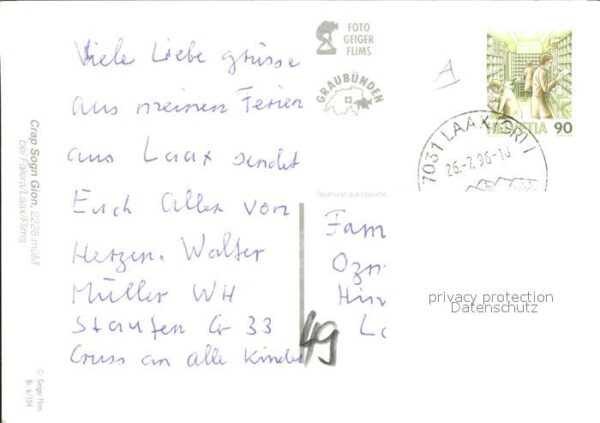 Viele Liebe grüsse
aus meinen Ferien
aus Laax sendet
Euch Allen von
Herzen. Walter
Müller WH
Staufen Gr 33
Gruss an alle Kinder
49
Fam
Ozm
Hin
La
FOTO
GEIGER
FLIMS
GRAUBÜNDEN
A
HELVETIA 90
7031 LAAX (GR) 1
26.-7.96-1
Crap Sogn Gion, 2228 müM
bei Falera/Laax/Flims
© Geiger Flims
Nr. 6/104
privacy protection
Datenschutz